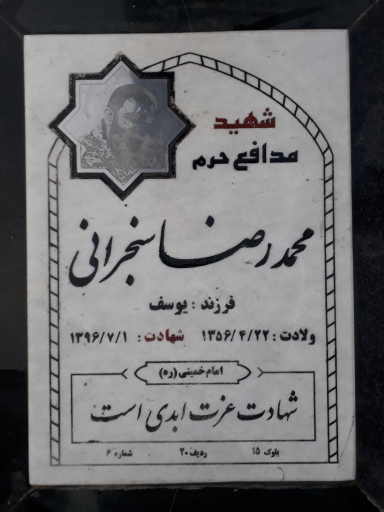 شهید
مدافع حرم
محمدرضا سنجرانی
فرزند : یوسف
ولادت : ۱۳۵۶/۴/۲۲ شهادت : ۱۳۹۶/۷/۱
امام خمینی (ره)
شهادت عزت ابدی است
بلوک ۱۵ ردیف ۲۰ شماره ۶